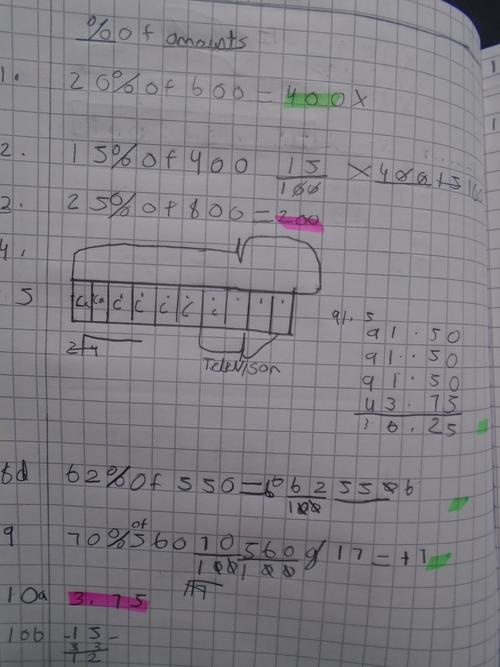 % of amounts
1. 20% of 600 = 400 X
2. 15% of 400 15/100 X 400
3. 25% of 800 = 200
4.
5
Televison
91.5
91.50
91.50
91.50
43.75
6.25
62% of 550 = 62/100 550
9 70% of 560 70/100 560/100 17 = +7
10a 3.75
10b 15
33
12